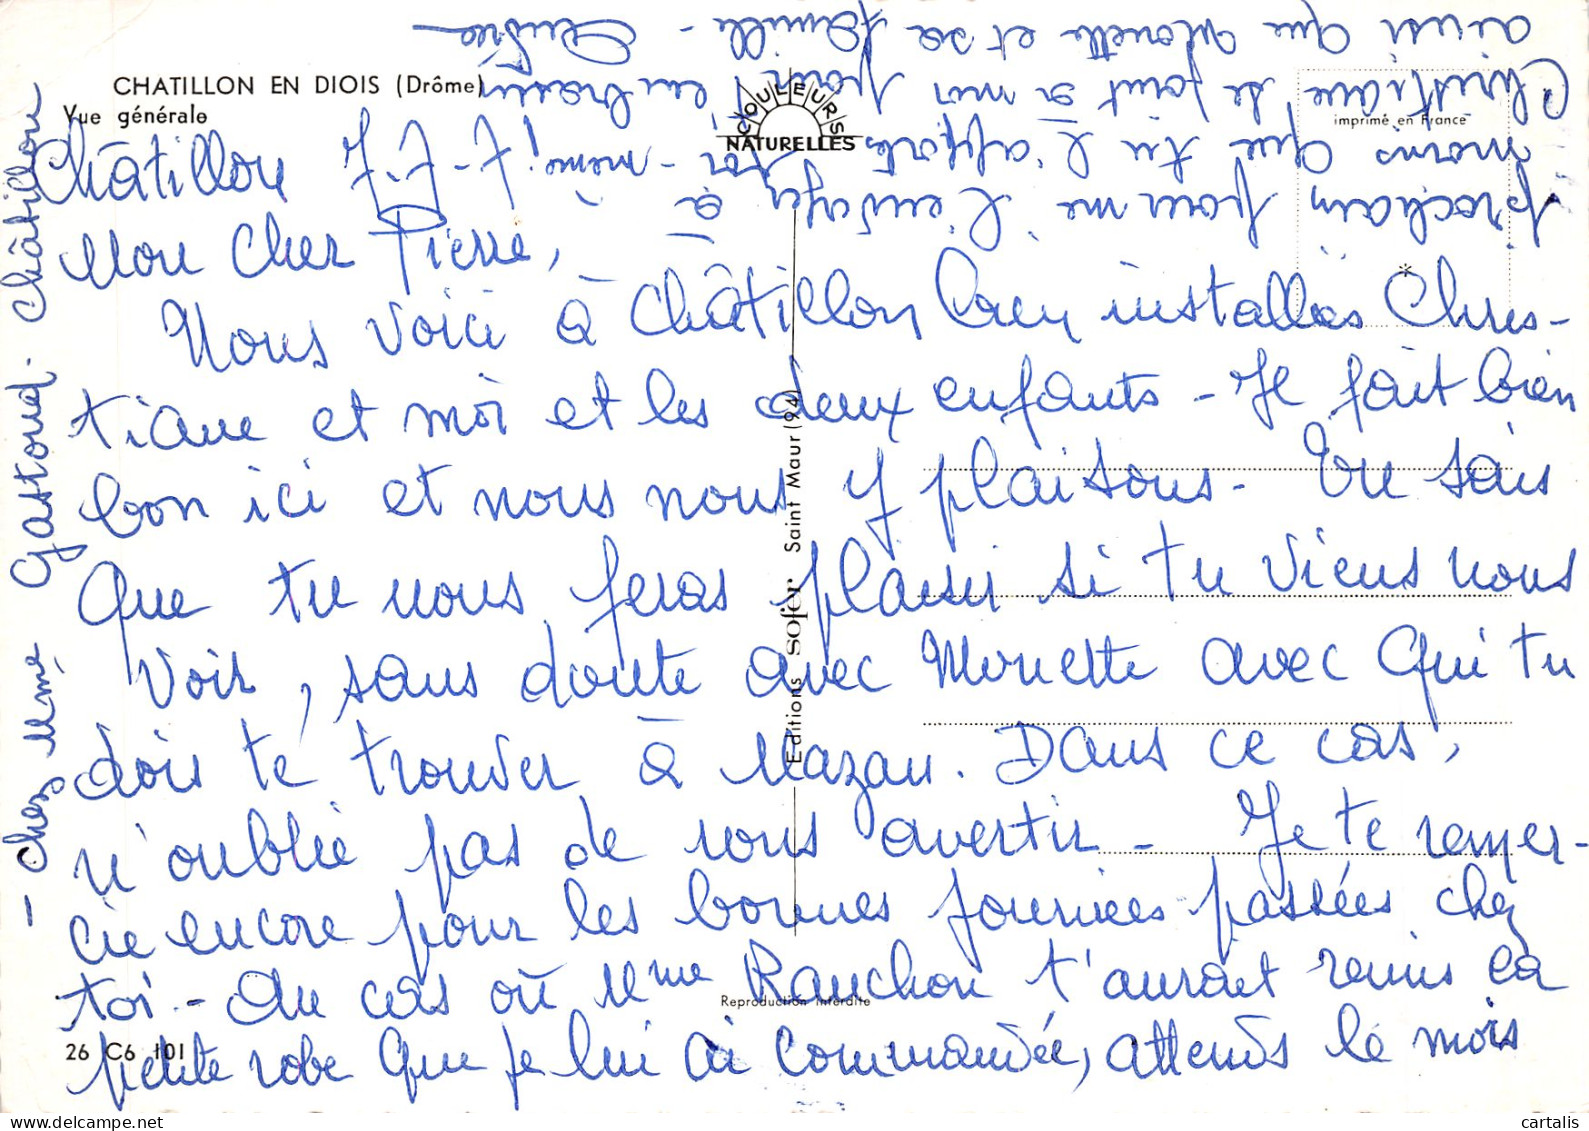 CHATILLON EN DIOIS (Drôme)
Vue générale
COULEURS
NATURELLES
imprimé en France
Châtillon 7-7-7
Mon cher Pierre,
Nous voici à Châtillon bien installés Chris-
tiane et moi et les deux enfants - Il fait bien
bon ici et nous nous y plaisons - Tu sais
que tu nous feras plaisir si tu viens nous
voir, sans doute avec Monette avec qui tu
dois te trouver à Mazan. Dans ce cas,
n'oublie pas de nous avertir - Je te remer-
cie encore pour les bonnes journées passées chez
toi - Au cas où Mme Ranchon t'aurait remis la
petite robe que je lui ai commandée, attends le mois
prochain pour me l'envoyer à
moins que tu l'apportes toi-même!
Christiane se joint à moi pour t'embrasser
ainsi que Monette et sa famille - Andrée
- chez Mme Gastoud - Châtillon
Editions sofer Saint Maur (94)
Reproduction interdite
26 C6 101
cartalis